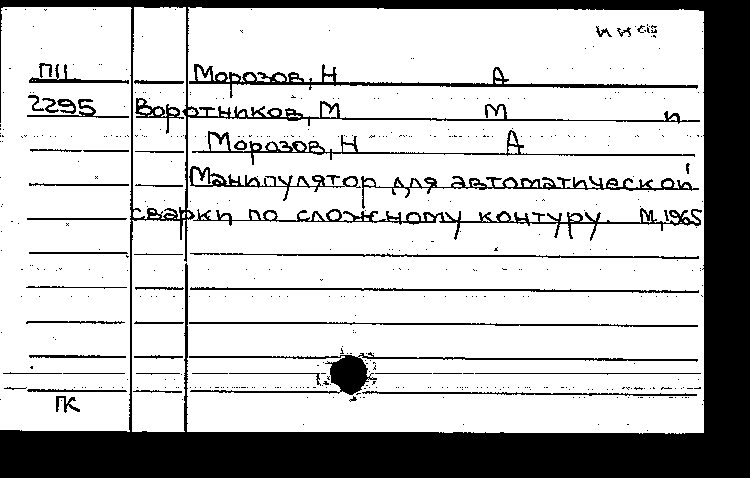 П11 Морозов, Н А
2295 Воротников, М М и
Морозов, Н А
Манипулятор для автоматической
сварки по сложному контуру. М, 1965
ПК